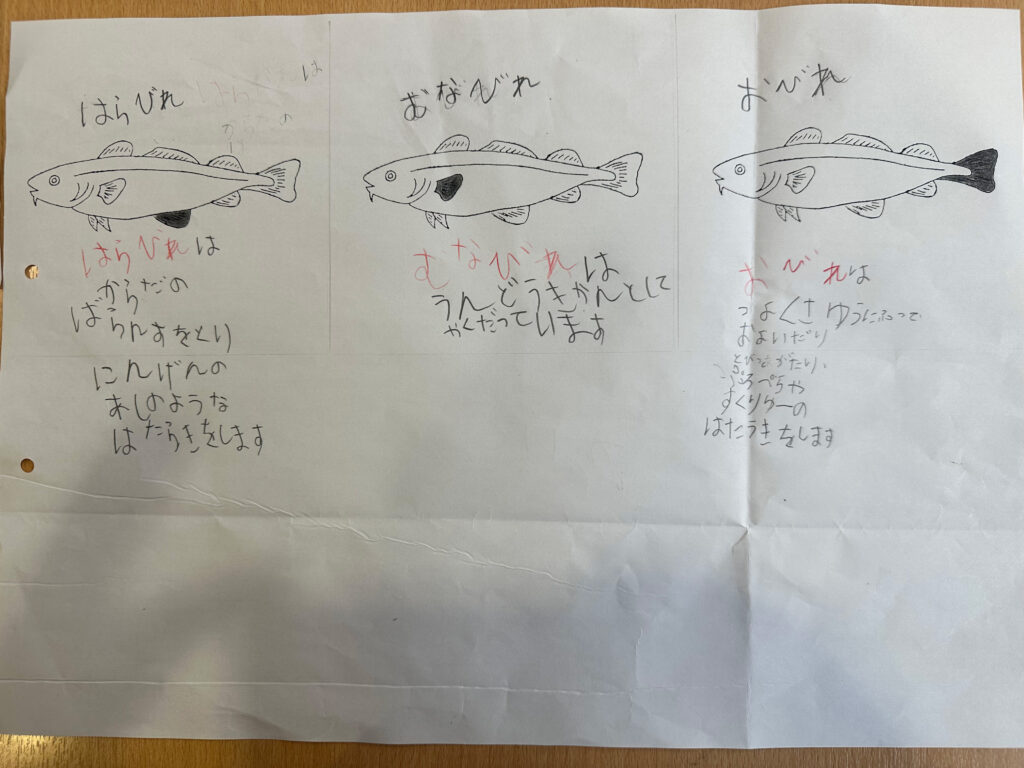 はらびれ
はらびれは
からだの
ばらんすをとり
にんげんの
あしのような
はたらきをします
むなびれ
むなびれは
うんどうきかんとして
やくだっています
おびれ
おびれは
つよくさゆうにふって
およいだり
すくりゅーの
はたらきをします